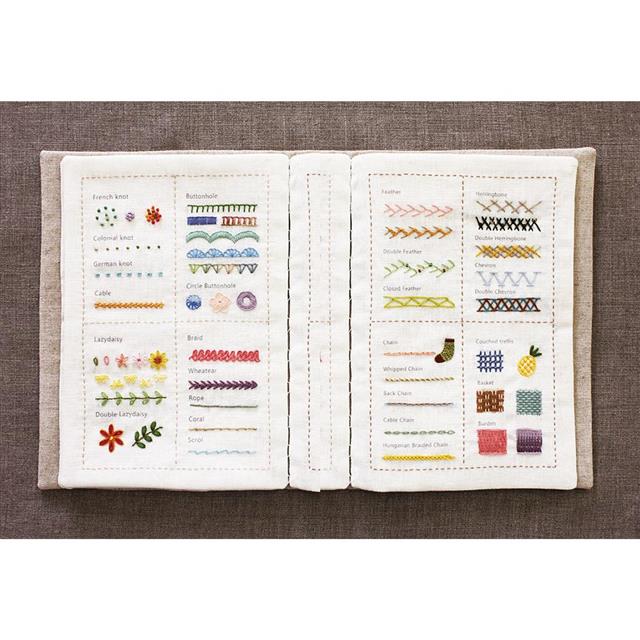 French knot
Colonial knot
German knot
Cable
Buttonhole
Circle Buttonhole
Lazydaisy
Double Lazydaisy
Braid
Wheatear
Rope
Coral
Scrol
Feather
Double Feather
Closed Feather
Herringbone
Double Herringbone
Chevron
Double Chevron
Chain
Whipped Chain
Back Chain
Cable Chain
Hungarian Braided Chain
Couched trellis
Basket
Burden